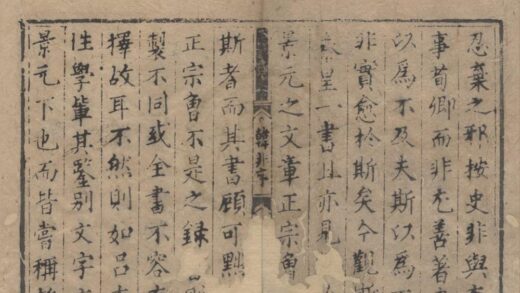 忍棄之邪按史非與
事荀卿而非尤善著
以為不及夫斯以為
非實愈於斯矣今觀
皇一書且亦見
景元之文章正宗曾
韓非子
斯者而其書顧可黜
正宗曾不是之錄
製不同或全書不容
擇故耳不然則如呂
性學輩其鑒別文字
景元下也而皆嘗稱